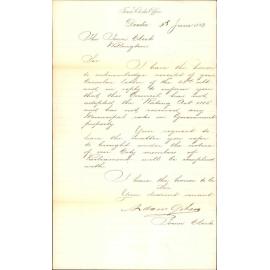 Town Clerk's Office
June
The Town Clerk
Wellington
Sir
I have the honor
to acknowledge receipt of your
Circular letter of the
and in reply to inform you
that this Council has not
adopted the Rating Act
and has not received any
Municipal rates on Government
property
Your request to
have the matter you refer
to brought under the notice
of our City members of
Parliament will be complied
with
I have the honor to be
Sir
Your obedient servant
Town Clerk